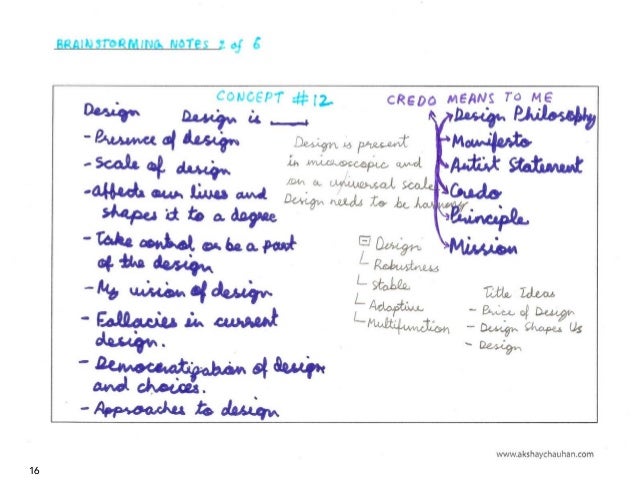 BRAINSTORMING NOTES 2 of 6
CONCEPT #12
Design Design is ____
- Presence of design
- Scale of design
- affects our lives and
shapes it to a degree
- Take control or be a part
of the design
- My vision of design
- Fallacies in current
design.
- Democratization of design
and choices.
- Approaches to design
Design is present
in microscopic and
on a universal scale
Design needs to be harmony
Design
Robustness
Stable
Adaptive
Multifunction
CREDO MEANS TO ME
Design Philosophy
Manifesto
Artist Statement
Credo
Principle
Mission
Title Ideas
- Price of Design
- Design Shapes Us
- Design
www.akshaychauhan.com
16